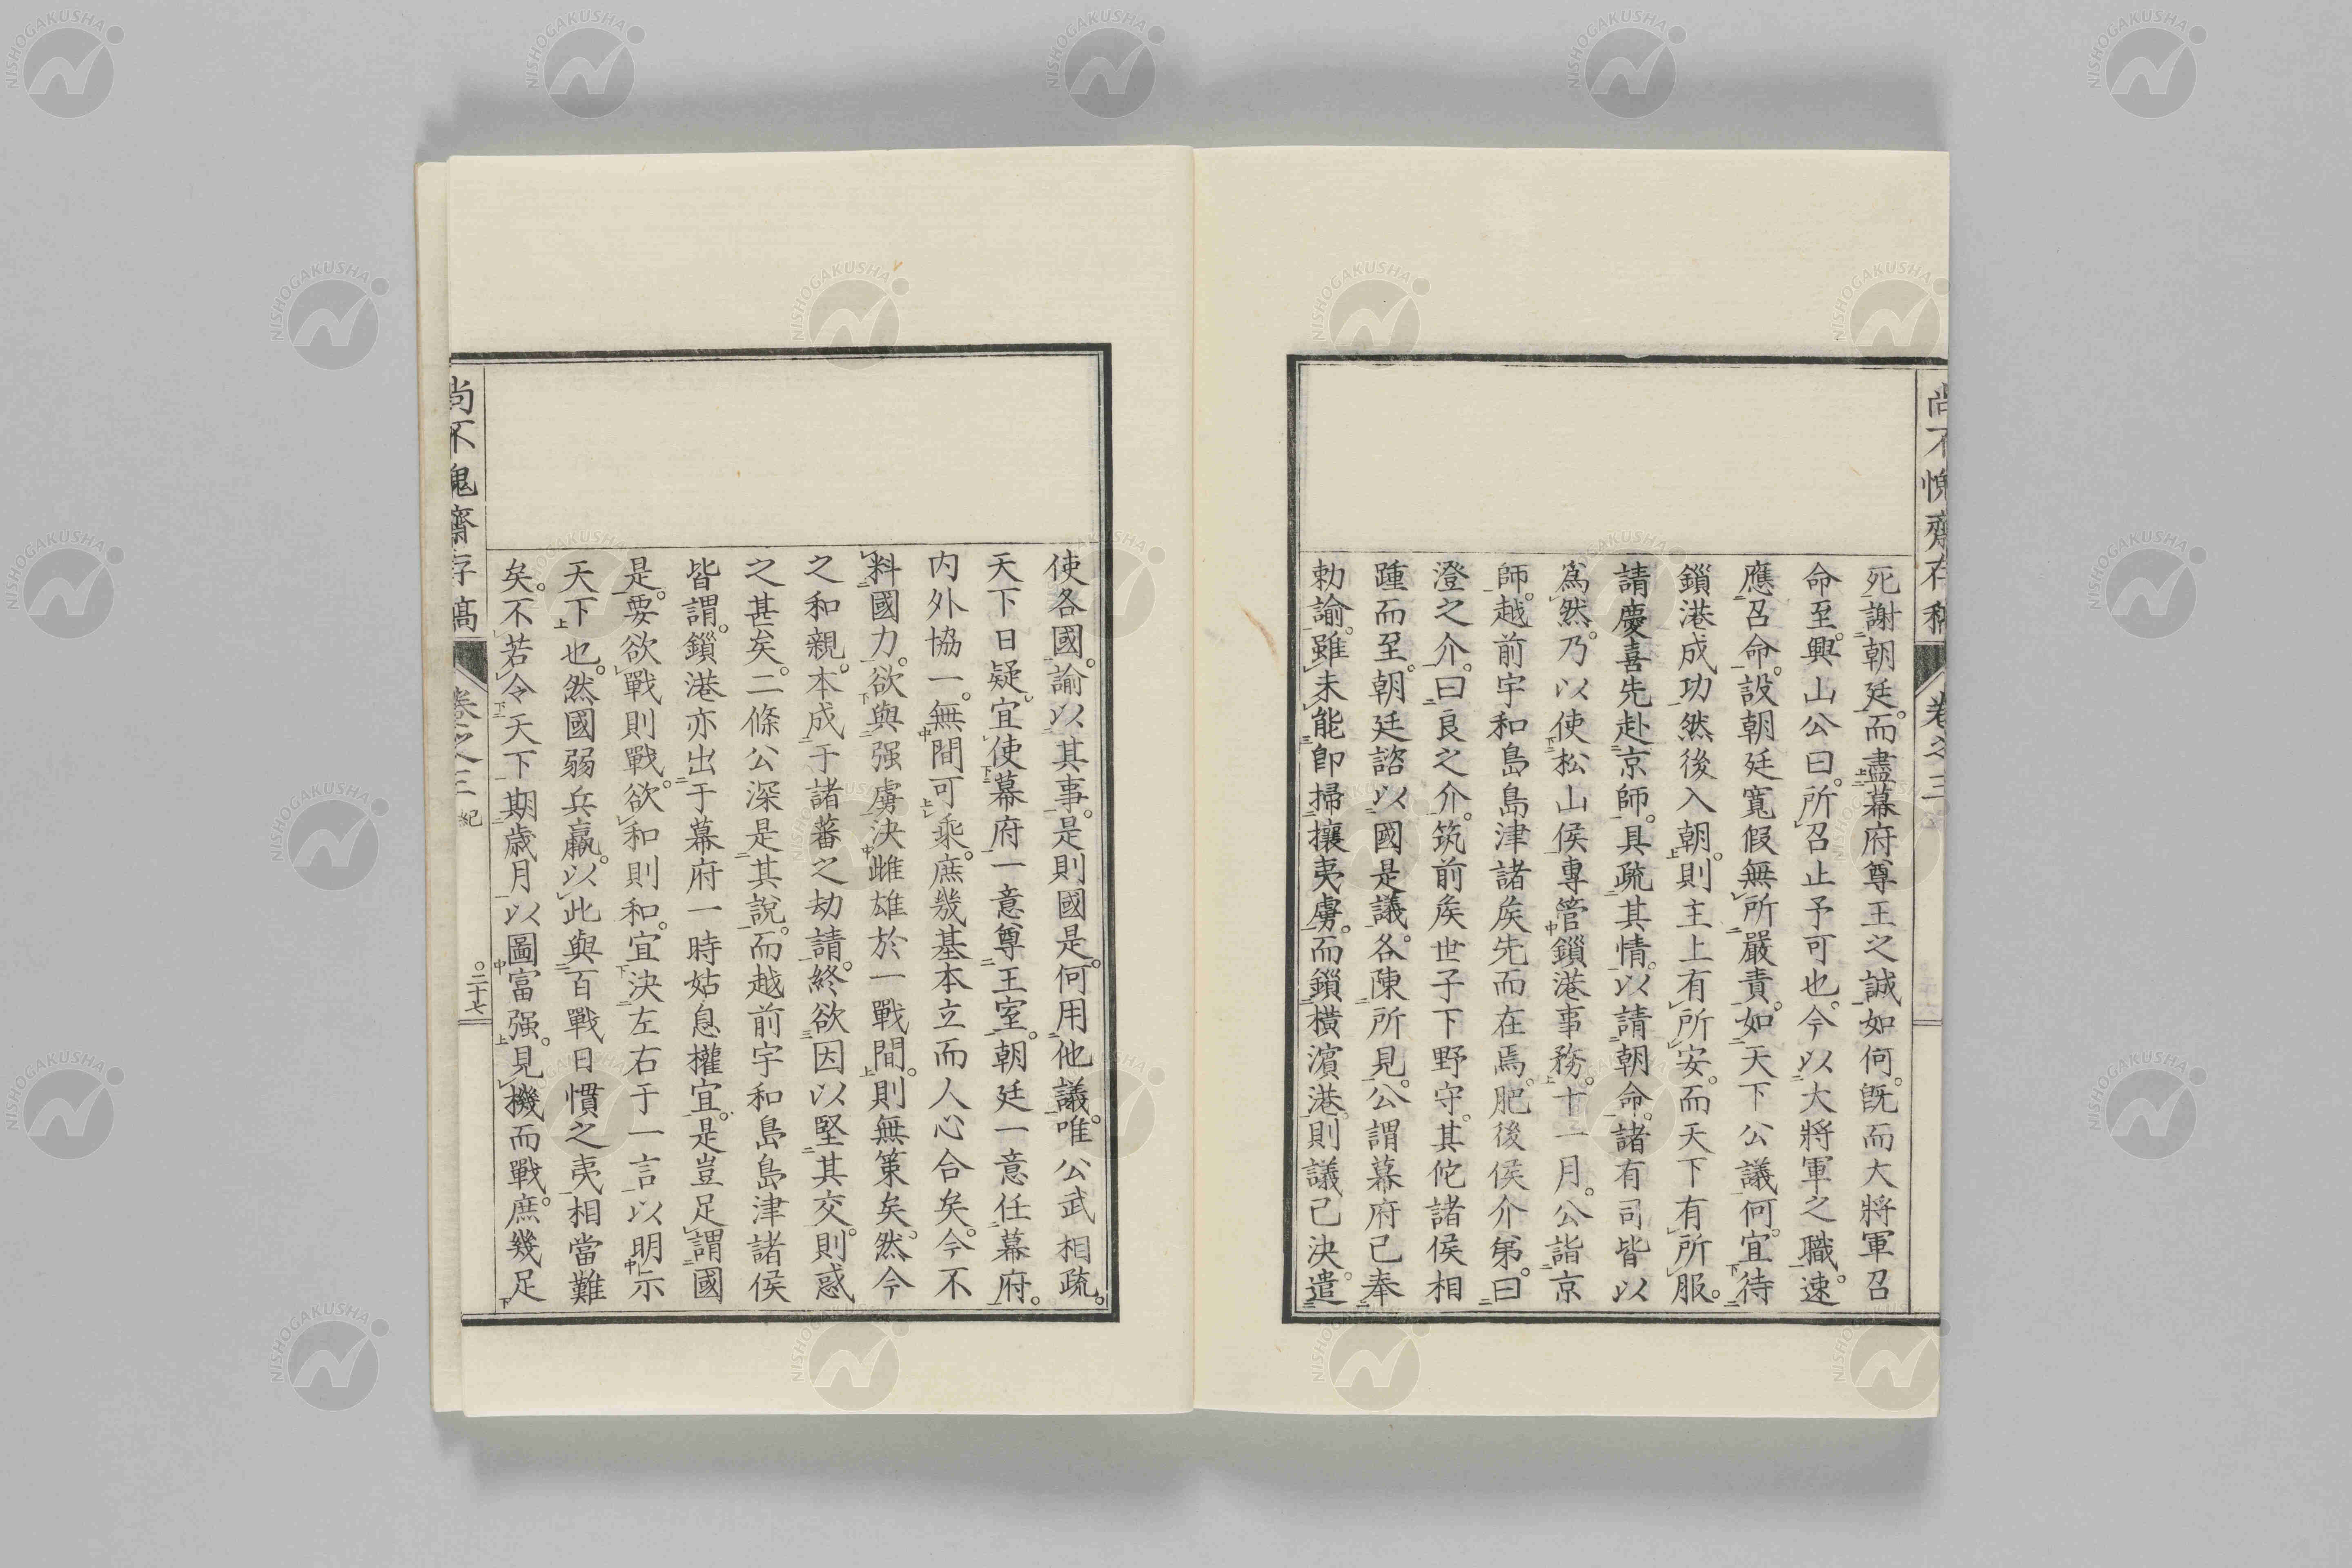 尚不愧齋存稿 卷之三
死謝朝廷。而盡幕府尊王之誠如何。既而大將軍召
命至。興山公曰。所召止予可也。今以大將軍之職。速
應召命。設朝廷寬假無所嚴責。如天下公議何。宜待
鎖港成功然後入朝。則主上有所安。而天下有所服。
請慶喜先赴京師。具疏其情。以請朝命。諸有司皆以
爲然。乃以使松山侯專管鎖港事務。十一月。公詣京
師。越前宇和島島津諸矦先而在焉。肥後侯介弟。曰
澄之介。曰良之介。筑前矦世子下野守。其佗諸侯相
踵而至。朝廷諮以國是議。各陳所見。公謂幕府已奉
勅諭。雖未能卽掃攘夷虜。而鎖橫濱港。則議已決。遣
使各國。諭以其事。是則國是。何用他議。唯公武相疏。
天下日疑。宜使幕府一意尊王室。朝廷一意任幕府。
内外協一。無間可乘。庶幾基本立而人心合矣。今不
料國力。欲與强虜決雌雄於一戰間。則無策矣。然今
之和親。本成于諸蕃之劫請。終欲因以堅其交。則惑
之甚矣。二條公深是其說。而越前宇和島島津諸侯
皆謂。鎖港亦出于幕府一時姑息權宜。是豈足謂國
是。要欲戰則戰。欲和則和。宜決左右于一言以明示
天下也。然國弱兵羸。以此與百戰日慣之夷相當難
矣。不若令天下期歲月以圖富强。見機而戰。庶幾足
尚不愧齋存稿 卷之三 紀 〇二十七